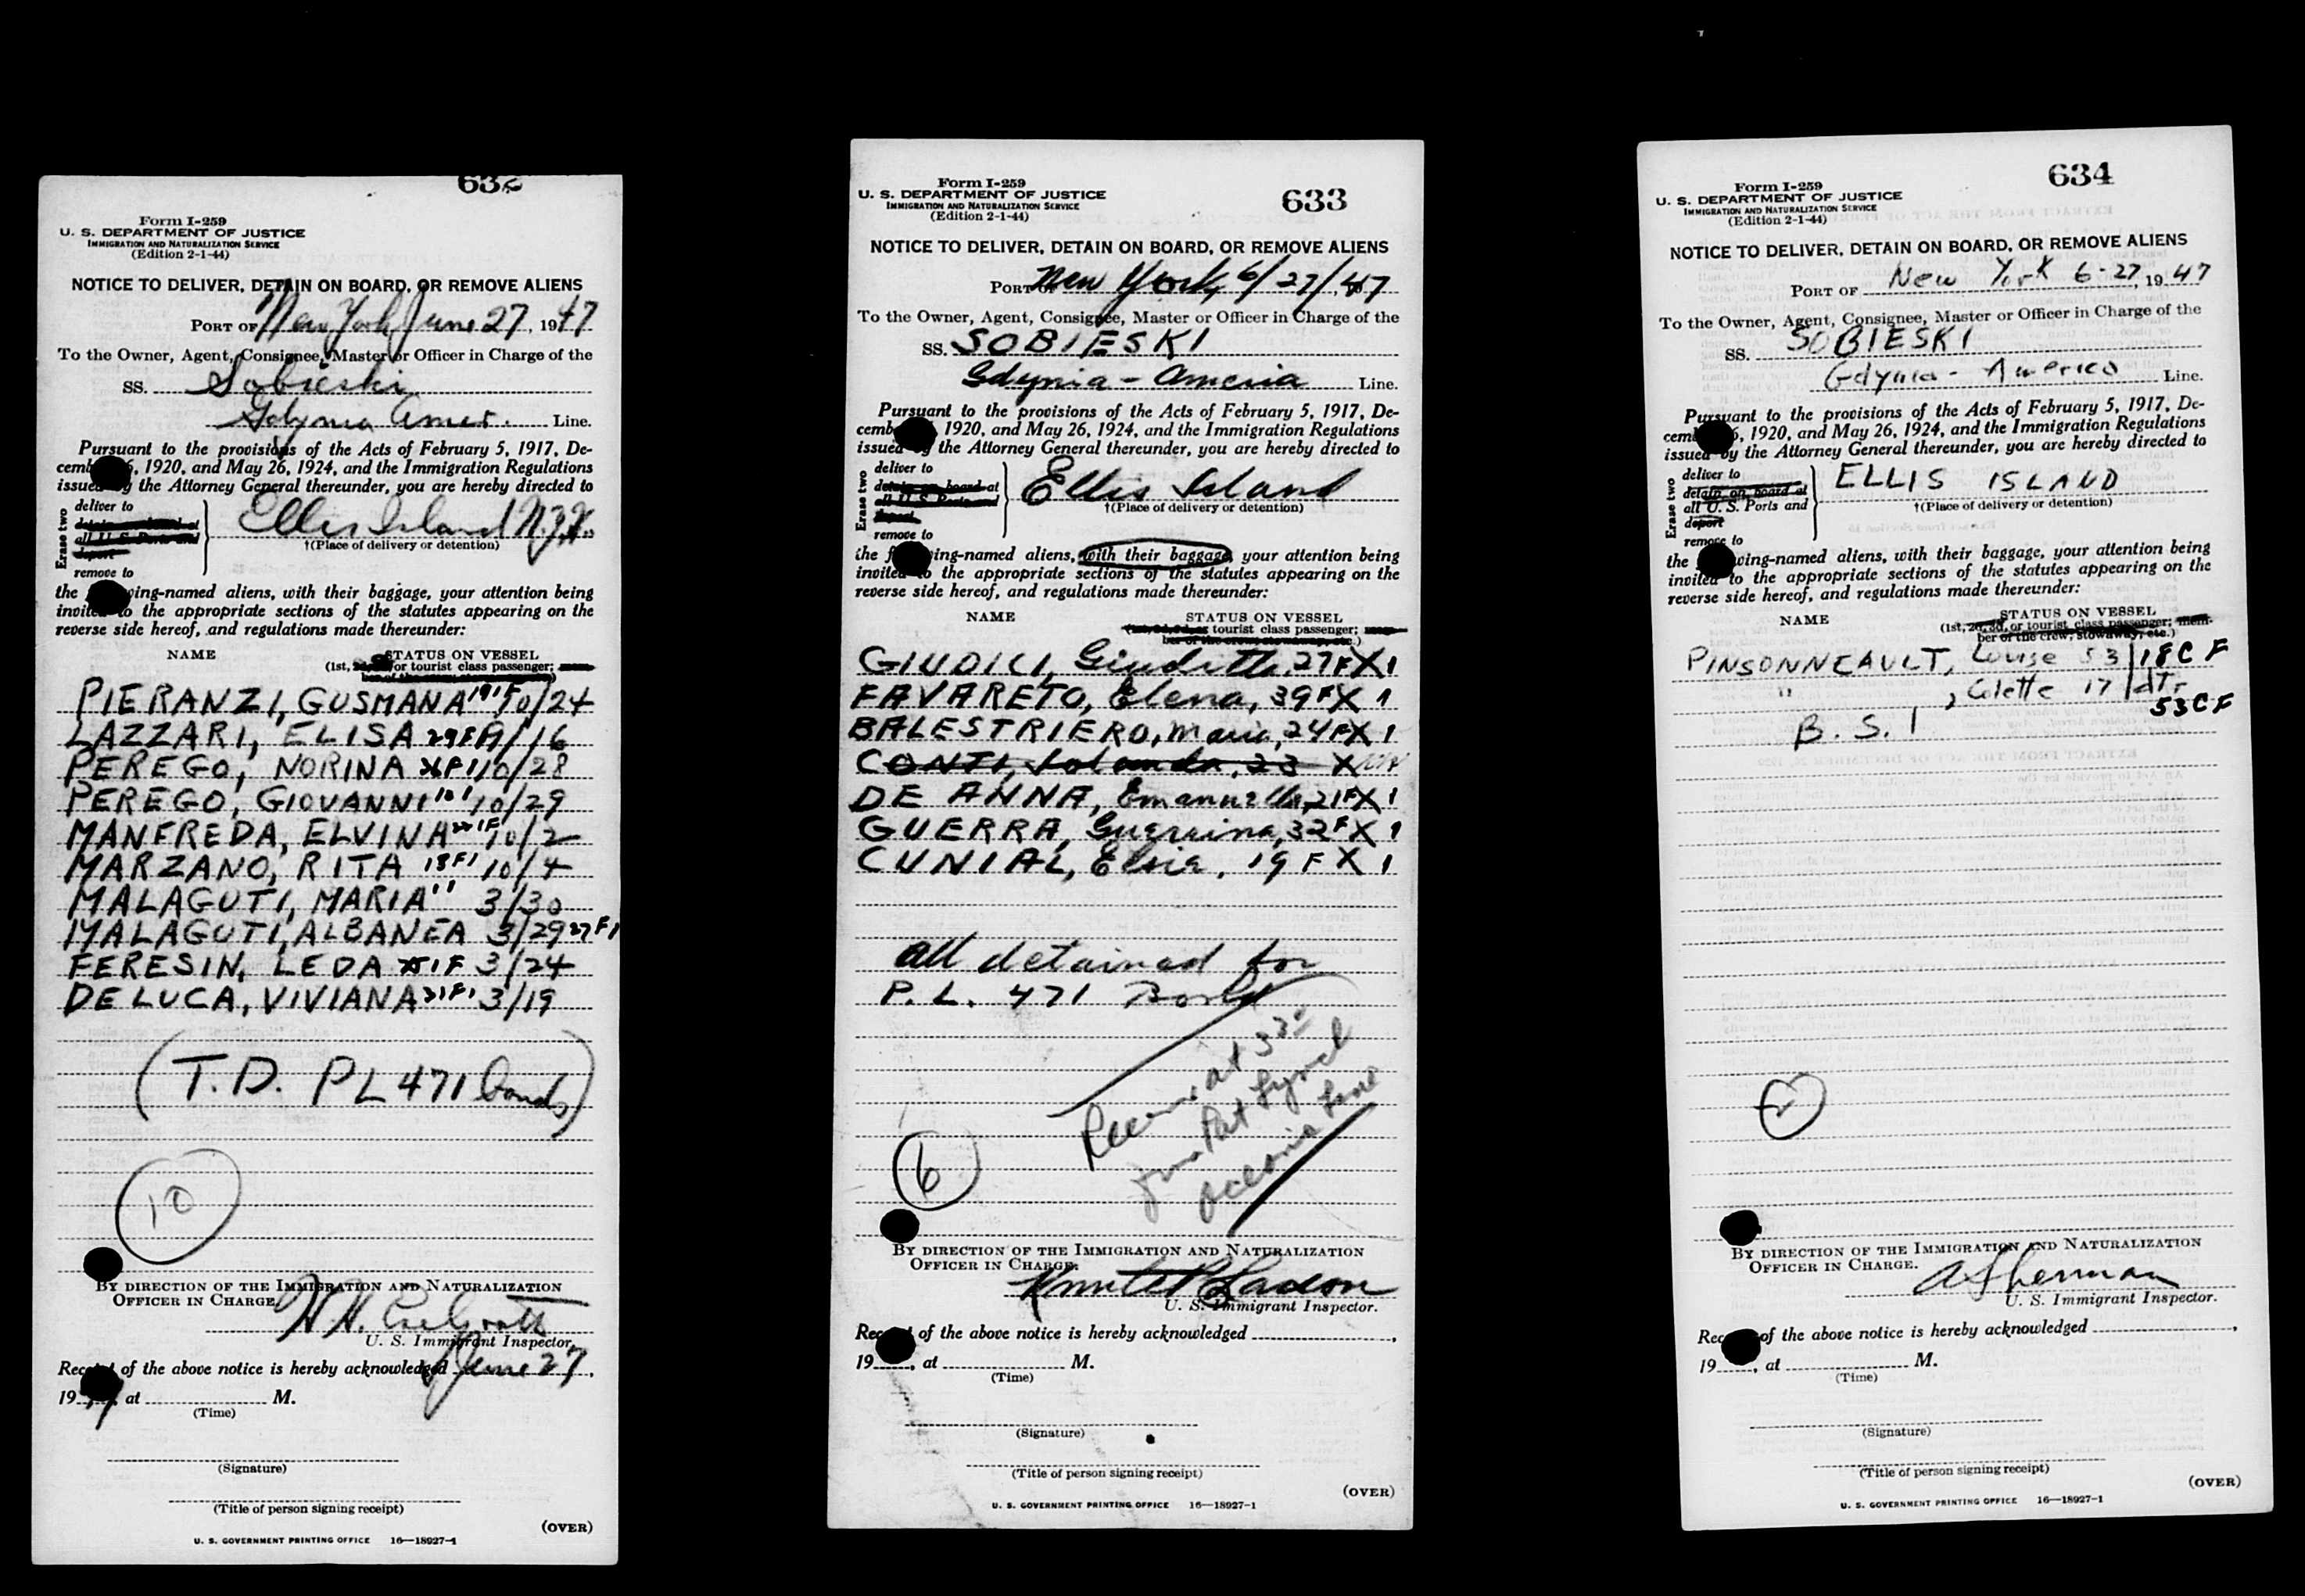 632
Form I-259
U. S. DEPARTMENT OF JUSTICE
IMMIGRATION AND NATURALIZATION SERVICE
(Edition 2-1-44)
NOTICE TO DELIVER, DETAIN ON BOARD, OR REMOVE ALIENS
PORT OF New York June 27, 1947
To the Owner, Agent, Consignee, Master or Officer in Charge of the
SS. Sobieski
Gdynia Amer. Line.
Pursuant to the provisions of the Acts of February 5, 1917, De-
cemb 6, 1920, and May 26, 1924, and the Immigration Regulations
issued by the Attorney General thereunder, you are hereby directed to
Erase two
deliver to
detain on board at
all U. S. Ports and
deport
remove to
Ellis Island N.Y.H.
†(Place of delivery or detention)
the wing-named aliens, with their baggage, your attention being
invited to the appropriate sections of the statutes appearing on the
reverse side hereof, and regulations made thereunder:
NAME STATUS ON VESSEL
(1st, or tourist class passenger; mem-
ber of the crew, stowaway, etc.)
PIERANZI, GUSMANA 19 1F 10/24
LAZZARI, ELISA 29 F A/16
PEREGO, NORINA F1 10/28
PEREGO, GIOVANNI 10/29
MANFREDA, ELVINA 1F 10/2
MARZANO, RITA 18 F1 10/4
MALAGUTI, MARIA 3/30
MALAGUTI, ALBANEA 3/29 27 F1
FERESIN, LEDA 1F 3/24
DE LUCA, VIVIANA 21 F1 3/19
(T.D. PL 471 bonds)
10
BY DIRECTION OF THE IMMIGRATION AND NATURALIZATION
OFFICER IN CHARGE.
U. S. Immigrant Inspector.
Receipt of the above notice is hereby acknowledged June 27,
1947, at M.
(Time)
(Signature)
(Title of person signing receipt)
(OVER)
U. S. GOVERNMENT PRINTING OFFICE 16—18927-1
633
Form I-259
U. S. DEPARTMENT OF JUSTICE
IMMIGRATION AND NATURALIZATION SERVICE
(Edition 2-1-44)
NOTICE TO DELIVER, DETAIN ON BOARD, OR REMOVE ALIENS
PORT OF New York, 6/27/, 47
To the Owner, Agent, Consignee, Master or Officer in Charge of the
SS. SOBIESKI
Gdynia - America Line.
Pursuant to the provisions of the Acts of February 5, 1917, De-
cemb 1920, and May 26, 1924, and the Immigration Regulations
issued by the Attorney General thereunder, you are hereby directed to
Erase two
deliver to
detain on board at
all U. S. Ports and
deport
remove to
Ellis Island
†(Place of delivery or detention)
the f wing-named aliens, with their baggage, your attention being
invited to the appropriate sections of the statutes appearing on the
reverse side hereof, and regulations made thereunder:
NAME STATUS ON VESSEL
(1st, 2d, 3d, or tourist class passenger; mem-
ber of the crew, stowaway, etc.)
GIUDICI, Giuditta, 27 F X 1
FAVARETO, Elena, 39 F X 1
BALESTRIERO, Maria, 24 F X 1
CONTI, Iolanda, 23 X
DE ANNA, Emanuella, 21 F X 1
GUERRA, Guerrina, 32 F X 1
CUNIAL, Elsie, 19 F X 1
all detained for
P.L. 471 Bond
Received at 530
from Pat Lynch
6
BY DIRECTION OF THE IMMIGRATION AND NATURALIZATION
OFFICER IN CHARGE.
U. S. Immigrant Inspector.
Receipt of the above notice is hereby acknowledged ,
19 , at M.
(Time)
(Signature)
(Title of person signing receipt)
(OVER)
U. S. GOVERNMENT PRINTING OFFICE 16—18927-1
634
Form I-259
U. S. DEPARTMENT OF JUSTICE
IMMIGRATION AND NATURALIZATION SERVICE
(Edition 2-1-44)
NOTICE TO DELIVER, DETAIN ON BOARD, OR REMOVE ALIENS
PORT OF New York 6-27, 1947
To the Owner, Agent, Consignee, Master or Officer in Charge of the
SS. SOBIESKI
Gdynia - America Line.
Pursuant to the provisions of the Acts of February 5, 1917, De-
cemb 6, 1920, and May 26, 1924, and the Immigration Regulations
issued by the Attorney General thereunder, you are hereby directed to
Erase two
deliver to
detain on board at
all U. S. Ports and
deport
remove to
ELLIS ISLAND
†(Place of delivery or detention)
the wing-named aliens, with their baggage, your attention being
invited to the appropriate sections of the statutes appearing on the
reverse side hereof, and regulations made thereunder:
NAME STATUS ON VESSEL
(1st, 2d, 3d, or tourist class passenger; mem-
ber of the crew, stowaway, etc.)
PINSONNEAULT, Louise 53 | 18 C F
" , Colette 17 | dtr
53 C F
B. S. I
BY DIRECTION OF THE IMMIGRATION AND NATURALIZATION
OFFICER IN CHARGE.
A Sherman
U. S. Immigrant Inspector.
Rec of the above notice is hereby acknowledged ,
19 , at M.
(Time)
(Signature)
(Title of person signing receipt)
(OVER)
U. S. GOVERNMENT PRINTING OFFICE 16—18927-1